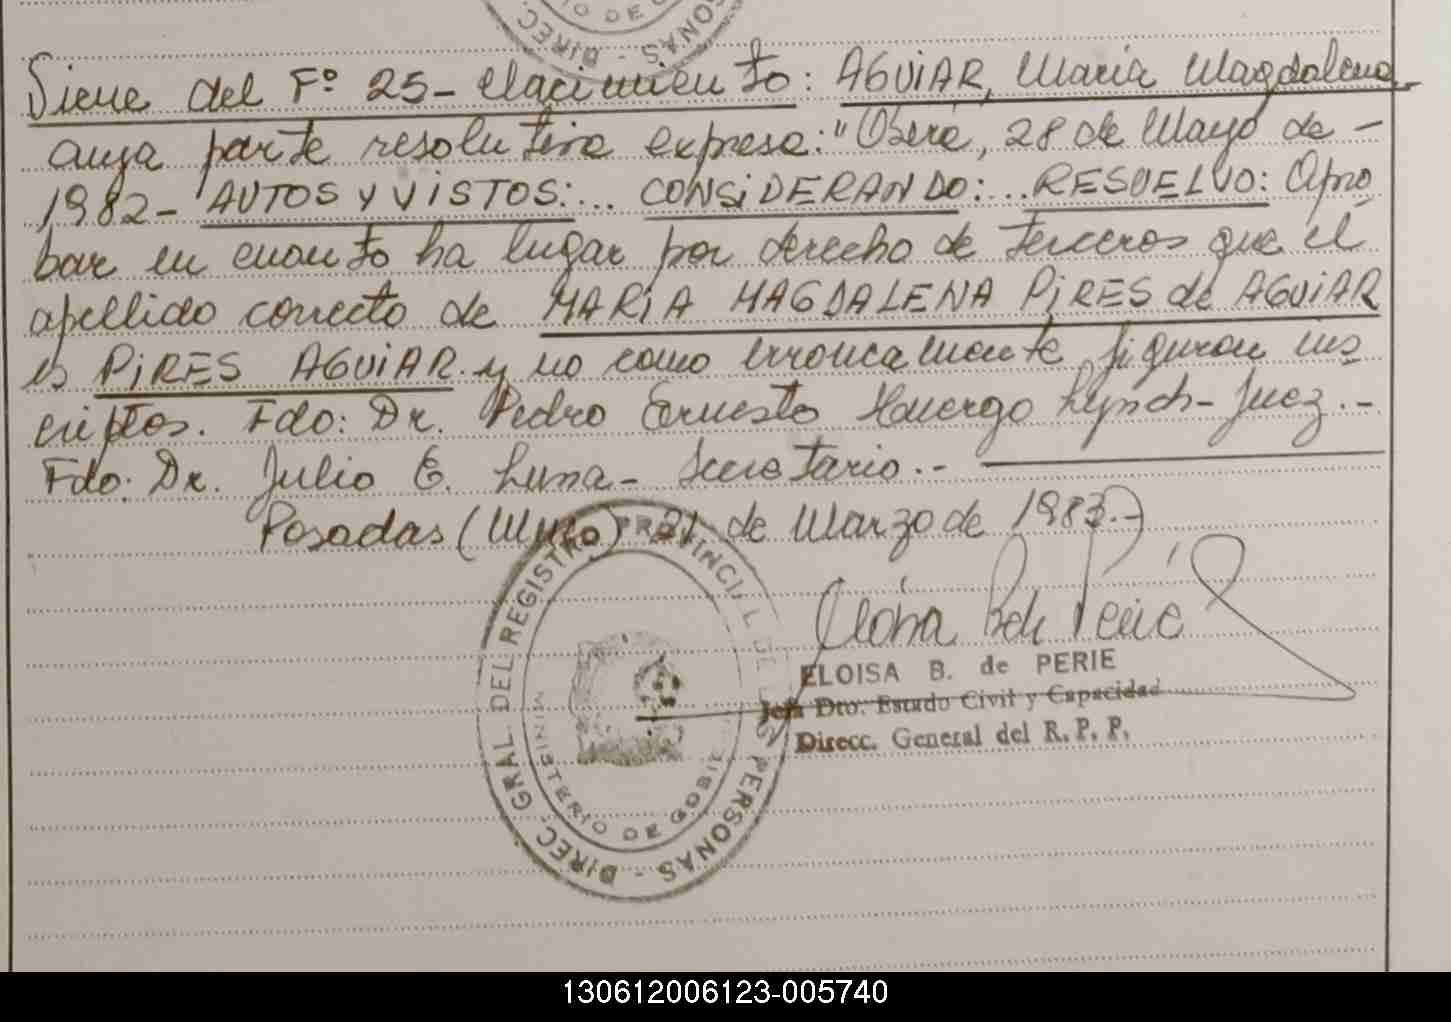 DIREC. PERSONAS - MINISTERIO DE GOBIE
Viene del Fº 25- Nacimiento: AGUIAR, María Magdalena
cuya parte resolutiva expresa: "Oberá, 28 de Mayo de -
1982- AUTOS Y VISTOS:... CONSIDERANDO:... RESUELVO: Apro
bar en cuanto ha lugar por derecho de terceros que el
apellido correcto de MARIA MAGDALENA PIRES de AGUIAR
es PIRES AGUIAR y no como erroneamente figuran ins
criptos. Fdo: Dr. Pedro Ernesto Huergo Lynch- Juez.-
Fdo. Dr. Julio E. Luna- Secretario.-
Posadas (Mnes) 21 de Marzo de 1983.-
DIREC. GRAL DEL REGISTRO PROVINCIAL DE LAS PERSONAS -
MINISTERIO DE GOBIE
ELOISA B. de PERIE
Jefa Dto. Estado Civil y Capacidad
Direcc. General del R. P. P.
130612006123-005740